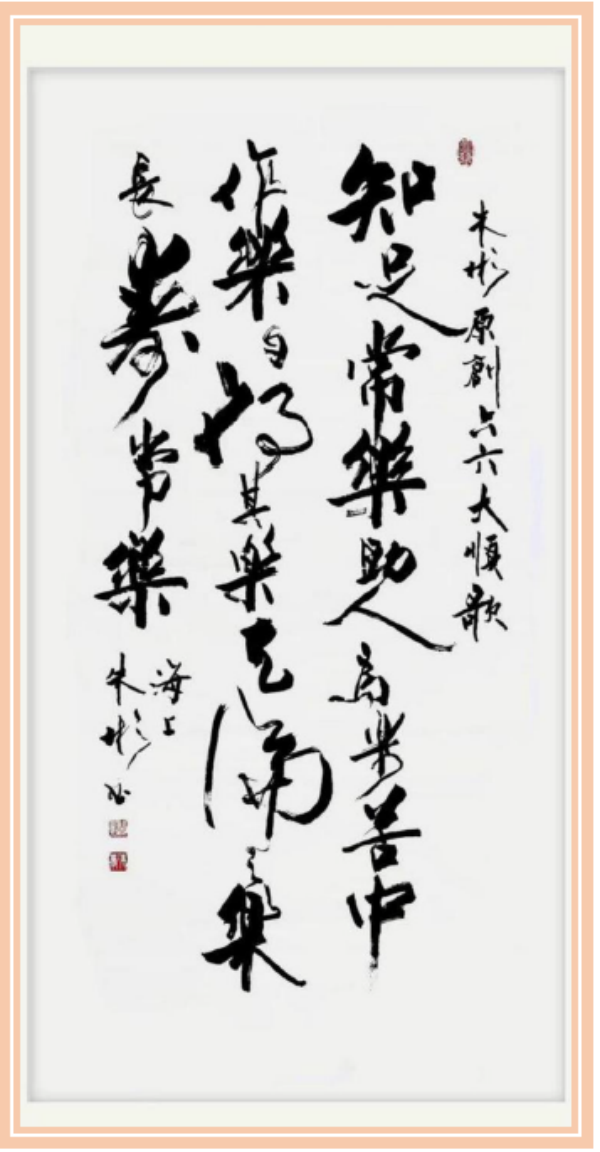 朱彬原創六六大順歌
知足常樂助人為樂苦中
作樂自得其樂天倫之樂
長壽常樂
海上
朱彬